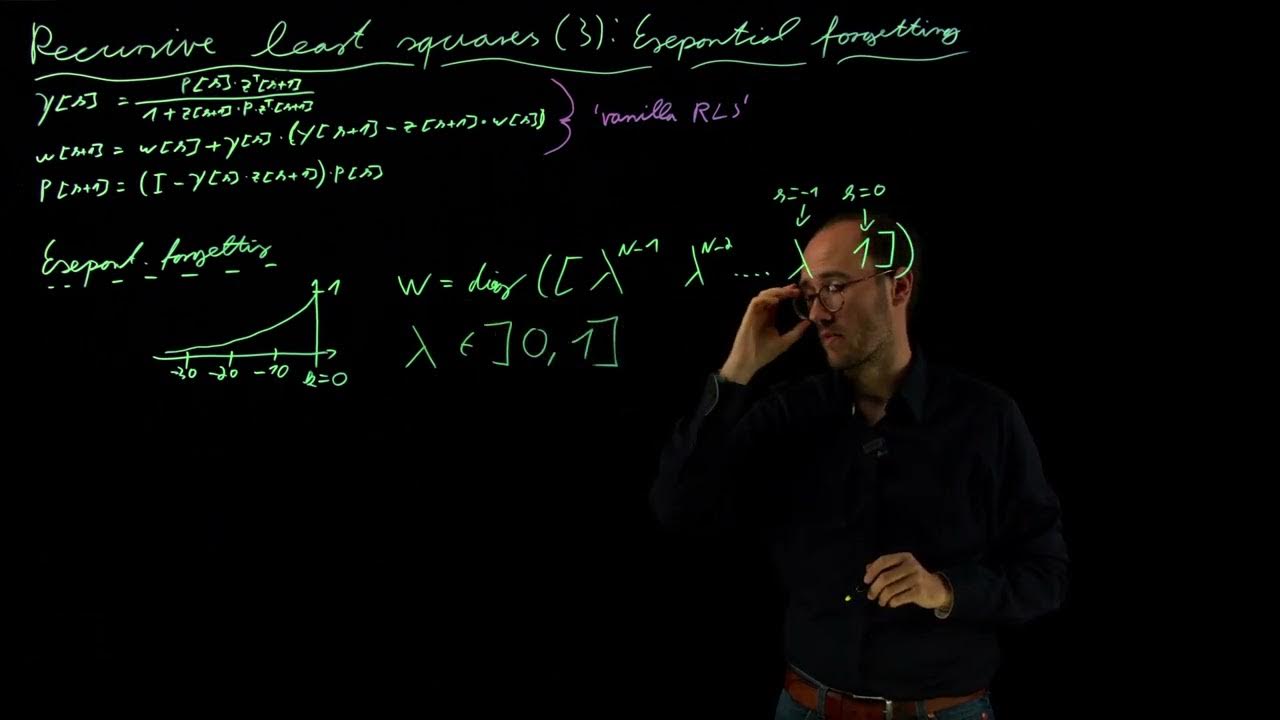 Recursive least squares (3): Exponential forgetting
γ[k] = P[k]·zᵀ[k+1] / 1+z[k+1]·P·zᵀ[k+1]
w[k+1] = w[k]+γ[k]·(y[k+1]-z[k+1]·w[k])
'vanilla RLS'
P[k+1] = (I-γ[k]·z[k+1])·P[k]
k=-1 k=0
Exponent. forgetting
W = diag([λᴺ⁻¹ λᴺ⁻² .... λ 1])
1
λ ∈ ]0,1]
-30 -20 -10 k=0